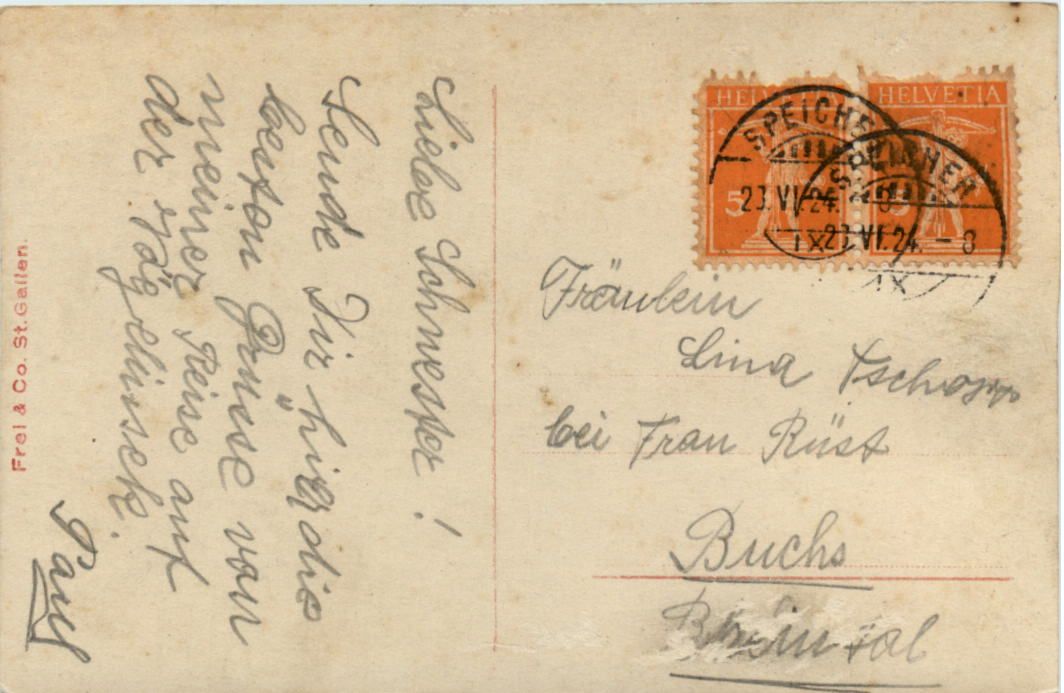 Liebe Schwester!
Sende Dir hier die
besten Grüsse von
meiner Reise auf
der Vögelinsek.
Paul
Frei & Co. St. Gallen.
HELVETIA
HELVETIA
5
SPEICHER
23.VI.24.
IX
SPEICHER
23.VI.24.–8
IX
Fräulein
Lina Tschopp
bei Frau Rüst
Buchs
Rheintal